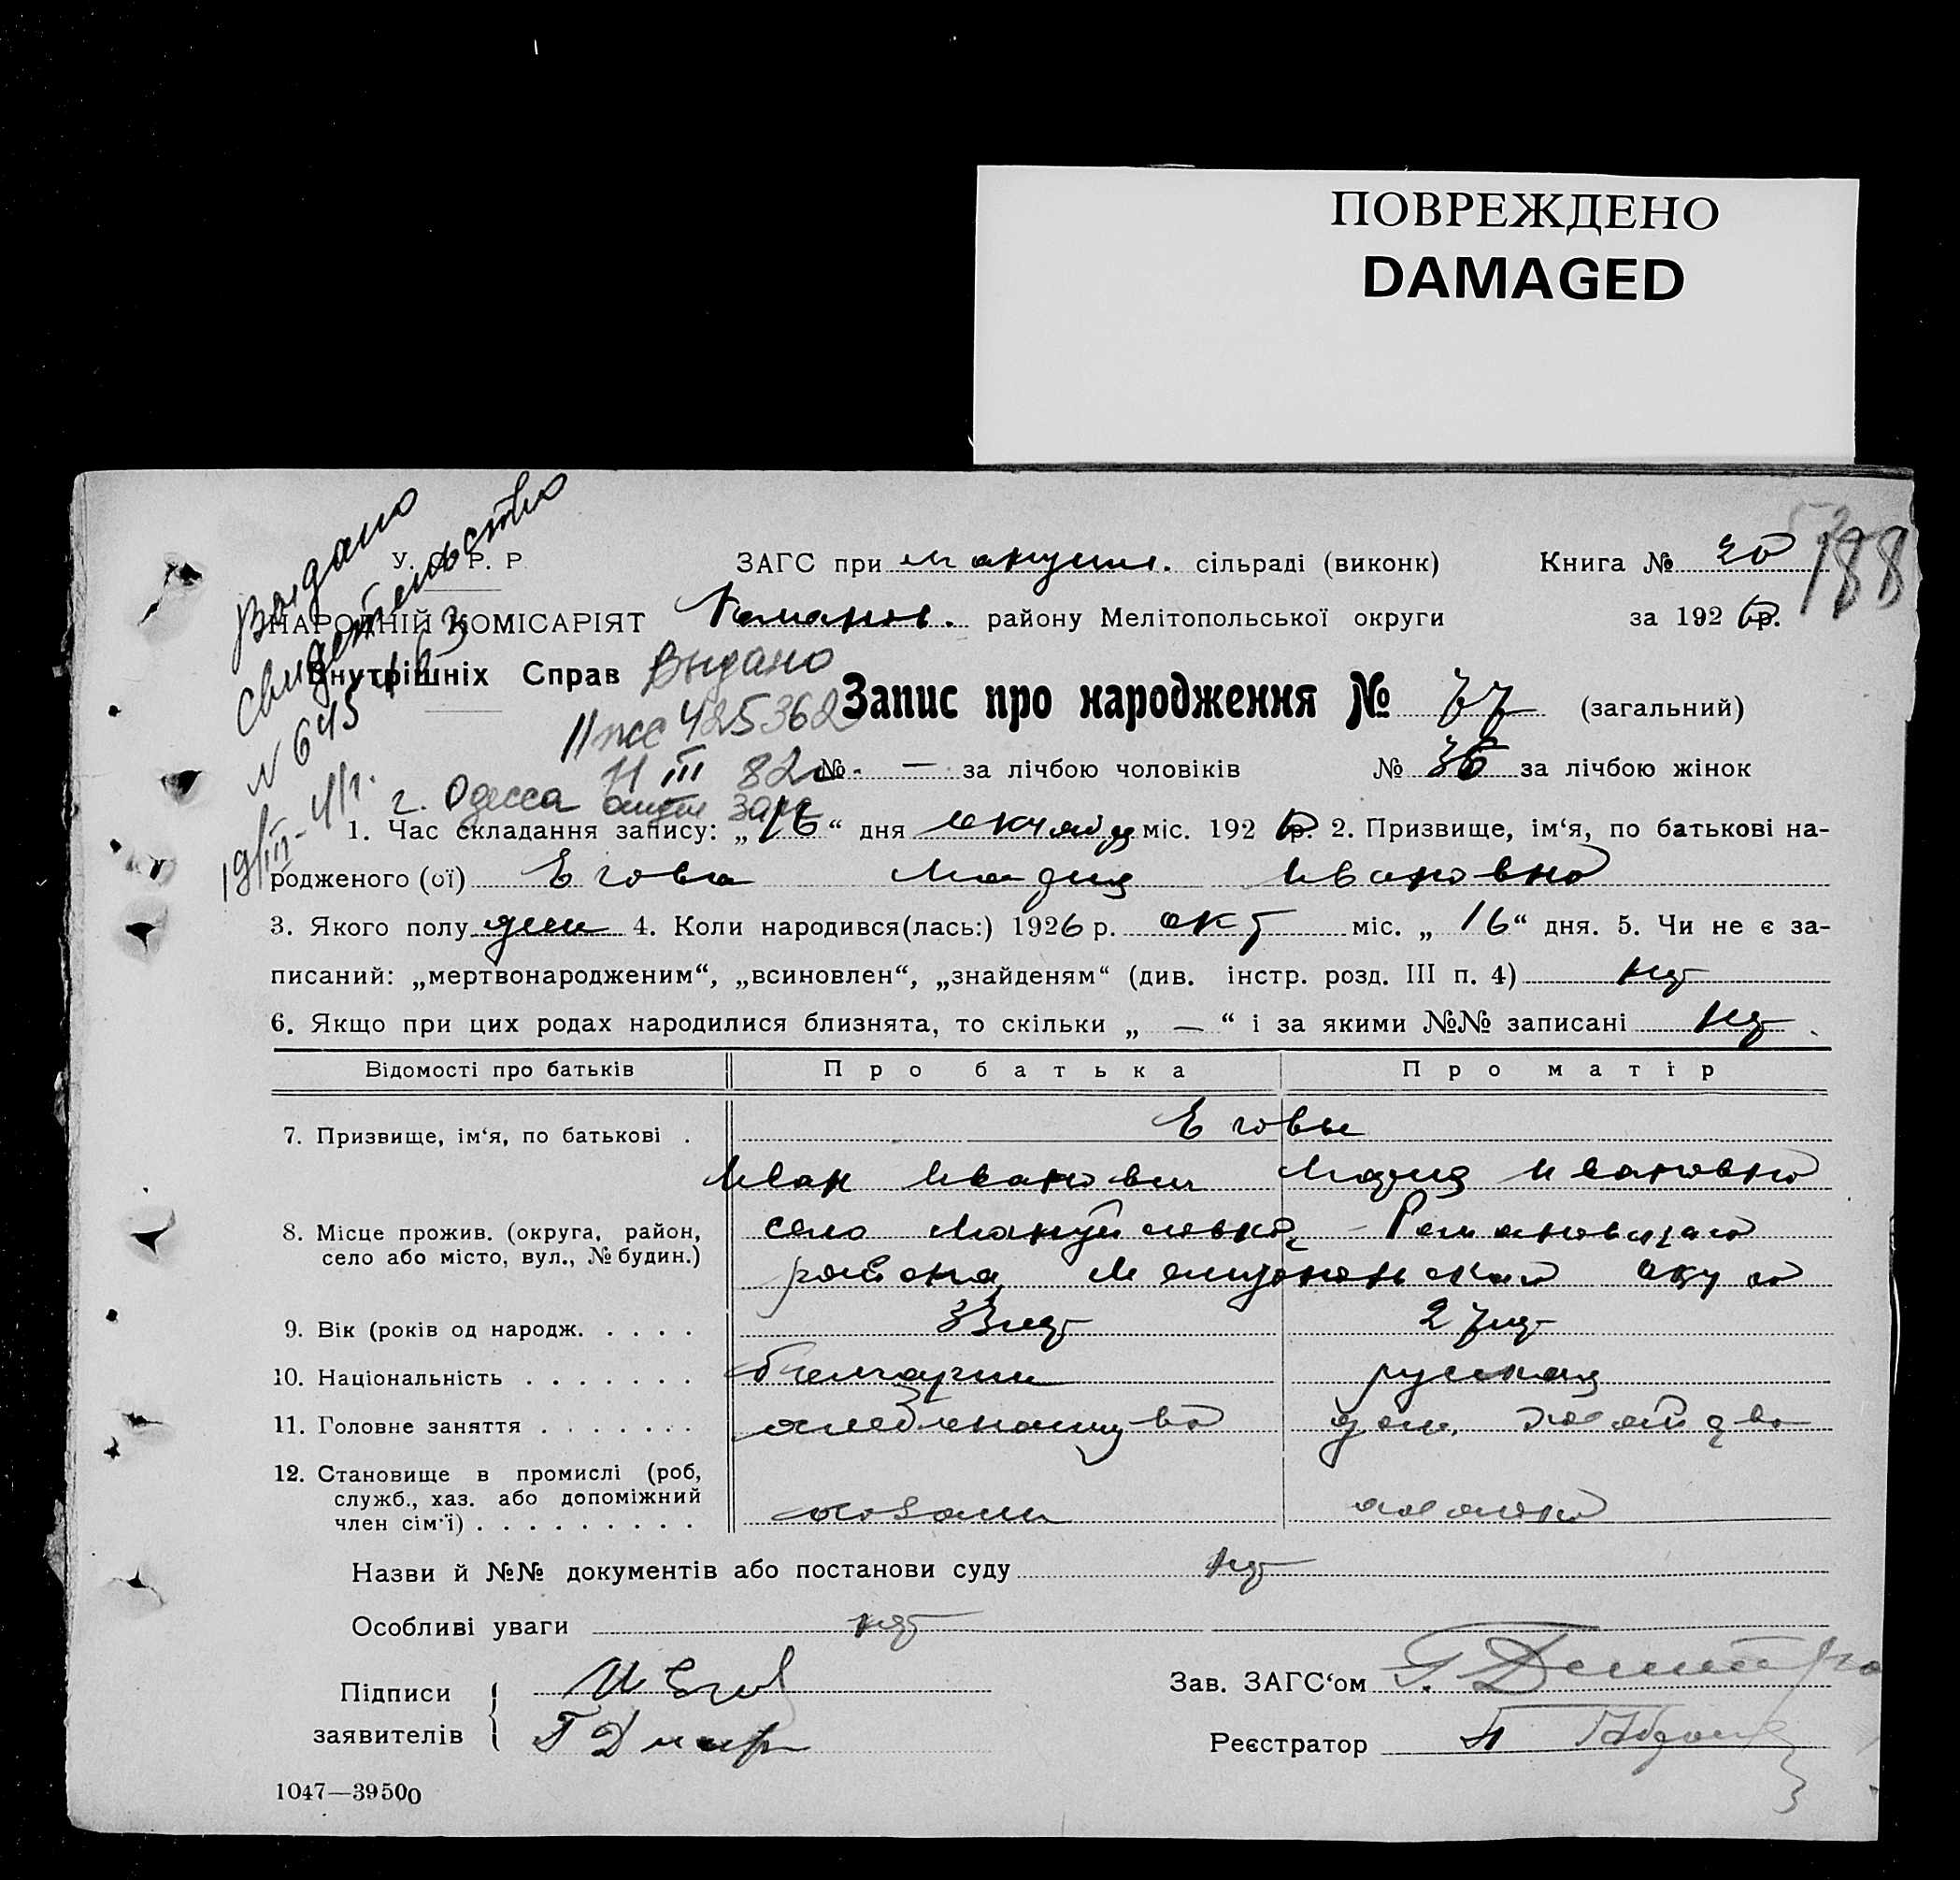 ПОВРЕЖДЕНО
DAMAGED
Выдано
свидетельство
N 645
У. С. Р. Р.
ЗАГС при мануил. сільраді (виконк)
Книга № 20
188
НАРОДНІЙ КОМІСАРІЯТ
Романов. району Мелітопольської округи
за 1926 р.
Внутрішніх Справ
Выдано
Запис про народження № 77 (загальний)
425362
№ — за лічбою чоловіків № 36 за лічбою жінок
11 III 82
г. Одесса
1. Час складання запису: „16“ дня октября міс. 1926 р. 2. Призвище, ім‘я, по батькові на-
родженого (ої) Егова Мария Ивановна
3. Якого полу жен 4. Коли народився(лась:) 1926 р. окт міс. „16“ дня. 5. Чи не є за-
писаний: „мертвонародженим“, „всиновлен“, „знайденям“ (див. інстр. розд. III п. 4) нет
6. Якщо при цих родах народилися близнята, то скільки „ — “ і за якими №№ записані нет.
Відомості про батьків Про батька Про матір
7. Призвище, ім‘я, по батькові . Еговы
Иван Иванович Мария Ивановна
8. Місце прожив. (округа, район,
село або місто, вул., № будин.)
село Мануйловка, Романовского
района Мелитопольского округа
9. Вік (років од народж. . . . . 33 лет 27 лет
10. Національність . . . . . . . болгарин русская
11. Головне заняття . . . . . . . хлебопашество дом. хозяйство
12. Становище в промислі (роб,
служб., хаз. або допоміжний
член сім‘ї) . . . . . . . . . хозяин
Назви й №№ документів або постанови суду нет
Особливі уваги нет
Підписи
заявителів
И Егов
Зав. ЗАГС‘ом
Реєстратор
1047—39500